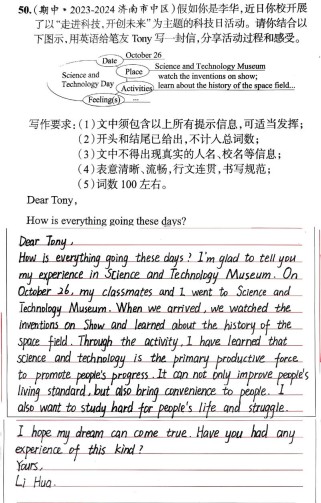 50.(期中·2023-2024济南市中区)假如你是李华,近日你校开展
了以“走进科技,开创未来”为主题的科技日活动。请你结合以
下图示,用英语给笔友 Tony 写一封信,分享活动过程和感受。
Date October 26
Science and Technology Day
Place Science and Technology Museum
Activities watch the inventions on show;
learn about the history of the space field...
Feeling(s) ...
写作要求:(1)文中须包含以上所有提示信息,可适当发挥;
(2)开头和结尾已给出,不计入总词数;
(3)文中不得出现真实的人名、校名等信息;
(4)表意清晰、流畅,行文连贯,书写规范;
(5)词数100左右。
Dear Tony,
How is everything going these days?
Dear Tony,
How is everything going these days? I'm glad to tell you
my experience in Science and Technology Museum. On
October 26, my classmates and I went to Science and
Technology Museum. When we arrived, we watched the
inventions on Show and learned about the history of the
space field. Through the activity, I have learned that
science and technology is the primary productive force
to promote people's progress. It can not only improve people's
living standard, but also bring convenience to people. I
also want to study hard for people's life and struggle.
I hope my dream can come true. Have you had any
experience of this kind?
Yours,
Li Hua.